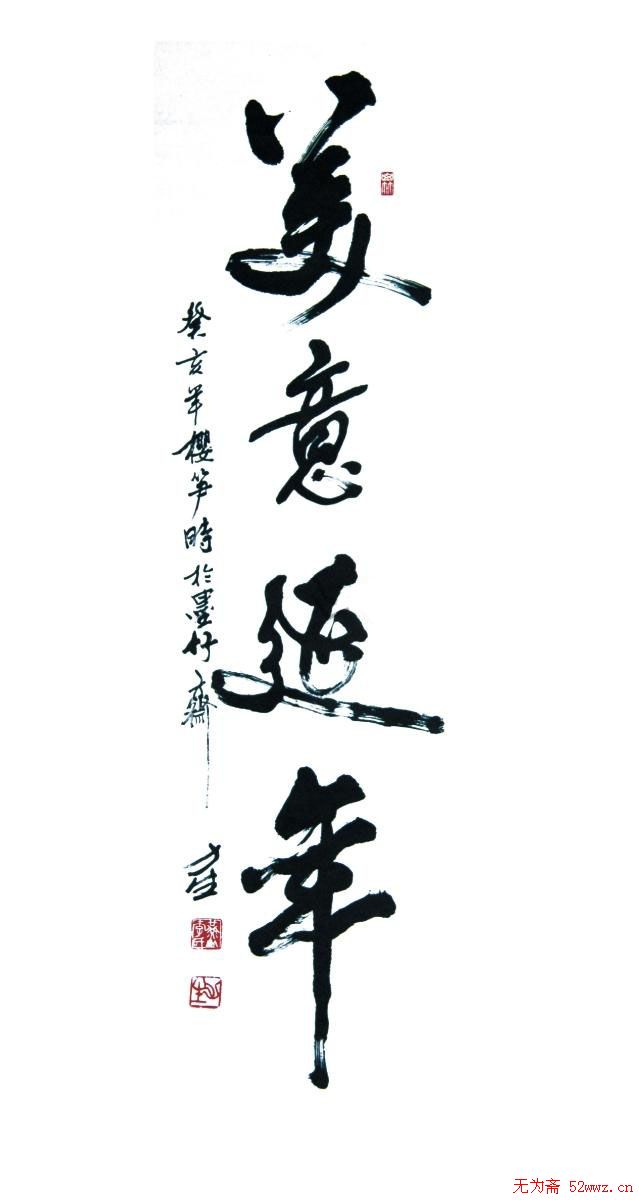 美意延年
癸亥年櫻笋時於墨竹齋
无为斋 52wwz.cn